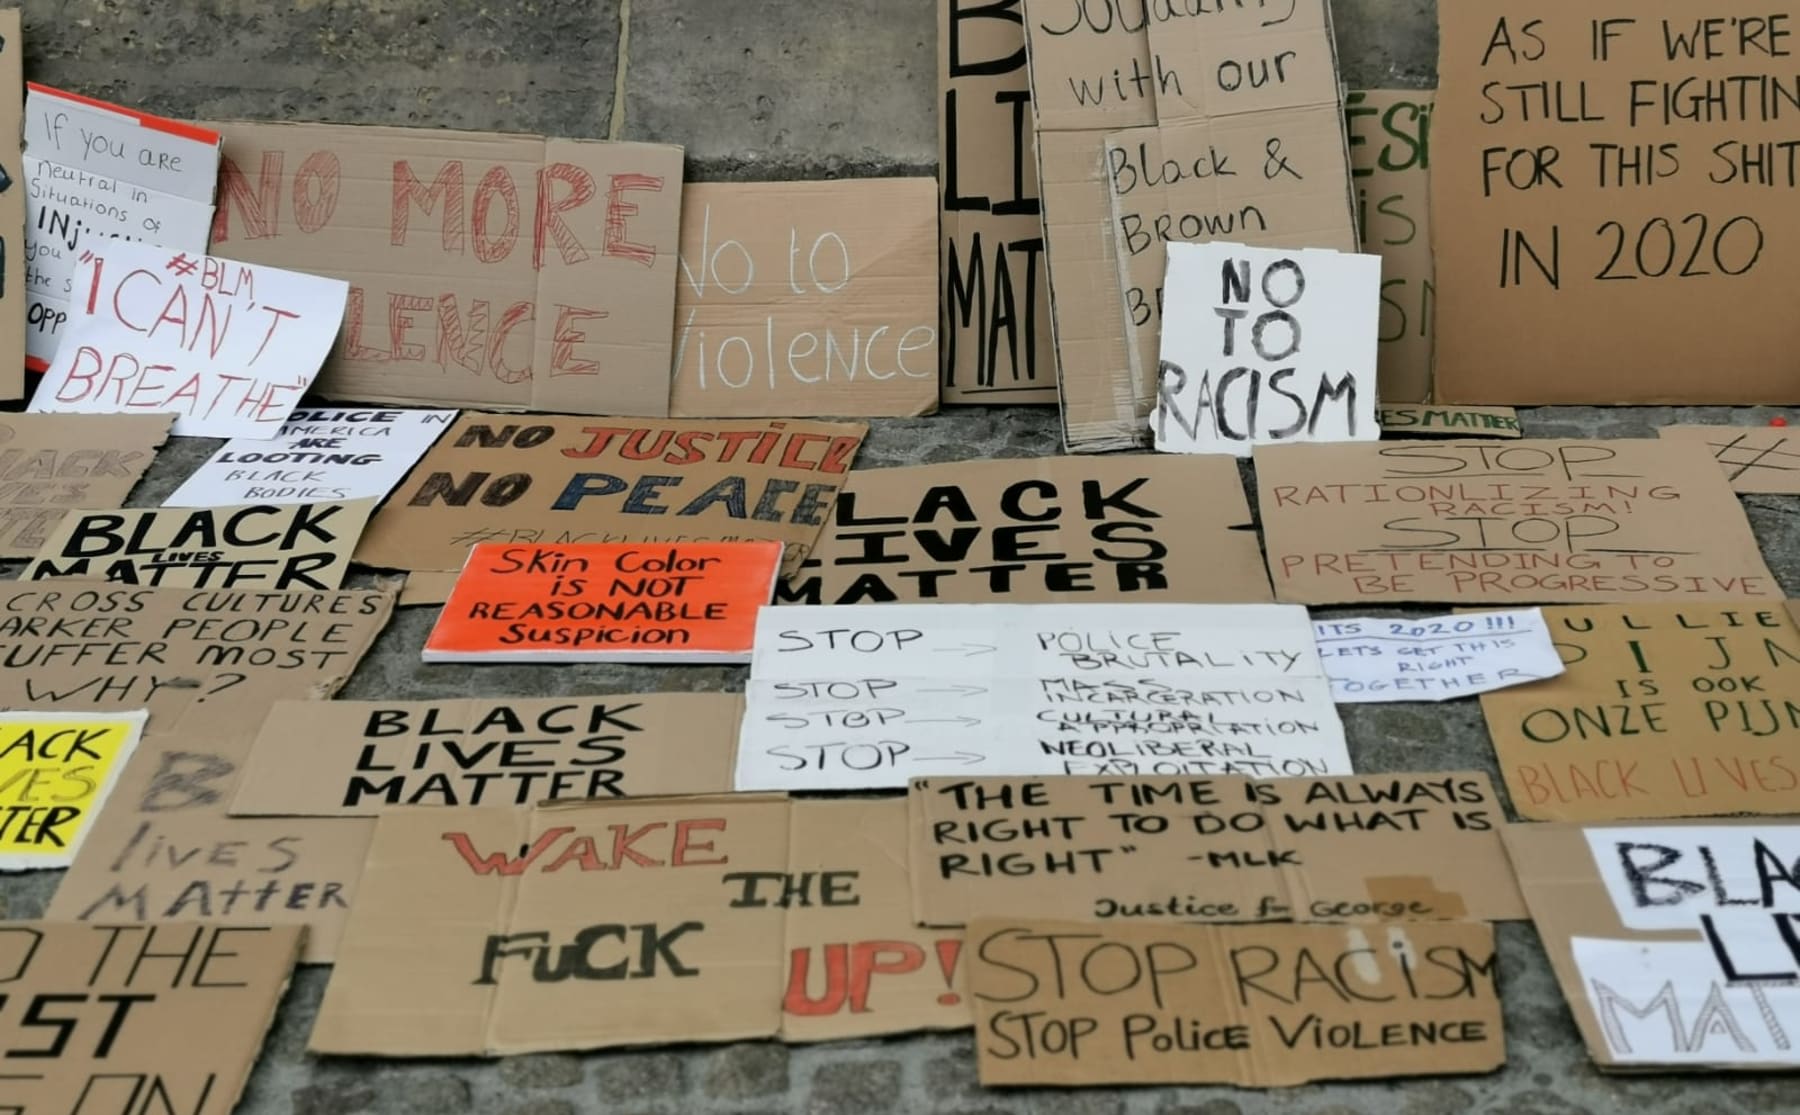 If you are
neutral in
situations of
you
the s
OPP
#BLM
"I CAN'T
BREATHE"
NO MORE
LENCE
No to
Violence
B
LI
MAT
Solidarity
with our
Black &
BROWN
NO
TO
RACISM
ESi
iS
AS IF WE'RE
STILL FIGHTIN
FOR THIS SHIT
IN 2020
ES MATTER
OLICE IN
AMERICA
ARE
LOOTING
BLACK
BODIES
NO JUSTICE
NO PEACE
#BLACKLIVESMA
LACK
LIVES
MATTER
STOP
RATIONLIZING
RACISM!
STOP
PRETENDING TO
BE PROGRESSIVE
BLACK
LIVES
MATTER
Skin Color
is NOT
REASONABLE
Suspicion
CROSS CULTURES
ARKER PEOPLE
UFFER MOST
WHY?
STOP → POLICE
BRUTALITY
STOP → MASS
INCARCERATION
STOP → CULTURAL
APPROPRIATION
STOP → NEOLIBERAL
EXPLOITATION
ITS 2020!!!
LETS GET THIS
RIGHT
TOGETHER
ULLIE
PIJN
IS OOK
ONZE PIJN
BLACK LIVES
ACK
VES
TER
B
lives
MAtter
BLACK
LIVES
MATTER
WAKE
THE
FUCK
UP!
"THE TIME IS ALWAYS
RIGHT TO DO WHAT IS
RIGHT" -MLK
Justice for George
STOP RACiSM
STOP Police ViOLENCE
BLA
LI
MAT
THE
ST
ON